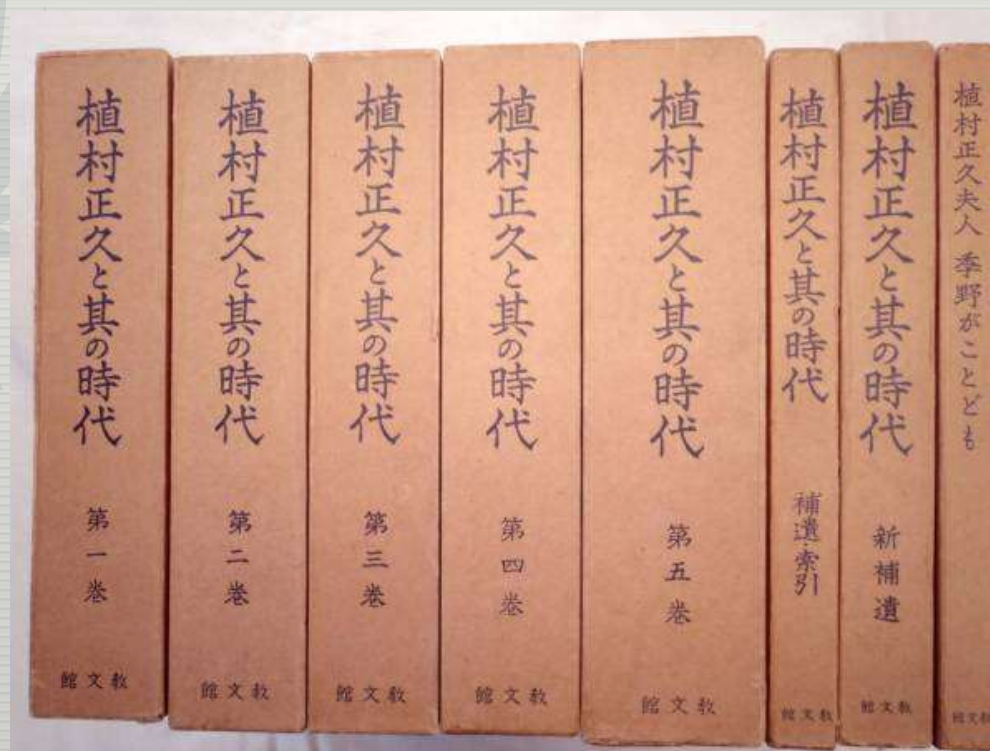 植村正久と其の時代
第一巻
教文館
植村正久と其の時代
第二巻
教文館
植村正久と其の時代
第三巻
教文館
植村正久と其の時代
第四巻
教文館
植村正久と其の時代
第五巻
教文館
植村正久と其の時代
補遺・索引
教文館
植村正久と其の時代
新補遺
教文館
植村正久夫人 季野がことども
教文館